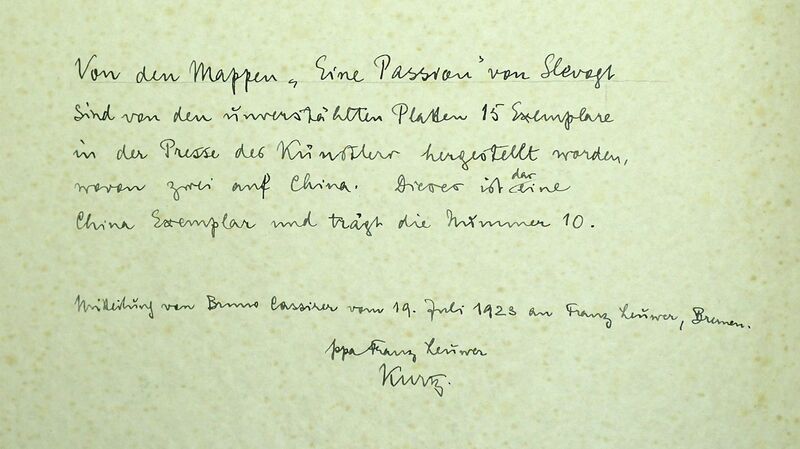 Von den Mappen „Eine Passion" von Slevogt
sind von den unverstählten Platten 15 Exemplare
in der Presse des Künstlers hergestellt worden,
wovon zwei auf China. Dieses ist das eine
China Exemplar und trägt die Nummer 10.
Mitteilung von Bruno Cassirer vom 19. Juli 1923 an Franz Leuwer, Bremen.
ppa Franz Leuwer
Kurtz.